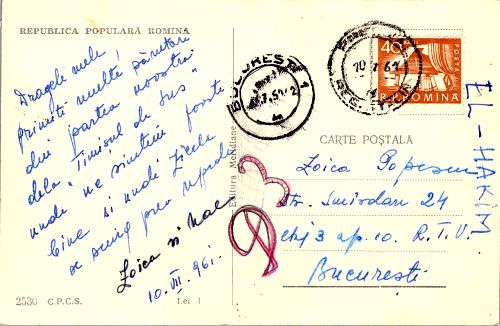 REPUBLICA POPULARĂ ROMÎNĂ
Dragele mele,
primiti multe sărutari
din partea noastră
dela "Timișul de sus"
unde ne simtem foarte
bine si unde zilele
se scurg prea repede
Zoica si Mac
10.VII.961.
2530 C.P.C.S.
Lei 1
Editura Meridiane
BUCUREȘTI 1
40
POSTA
R.P. ROMINA
CARTE POȘTALĂ
Zoica Popescu
Str. Smîrdan 24
Etaj 3 ap. 10. R.T.V.
București
EL-HAKIM.